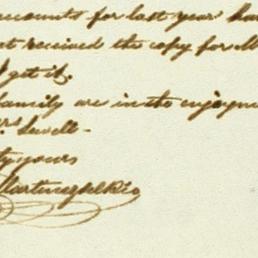 accounts for last year
not received the copy for
I get it.
family are in the enjoyme
rs. Sewell -
yours